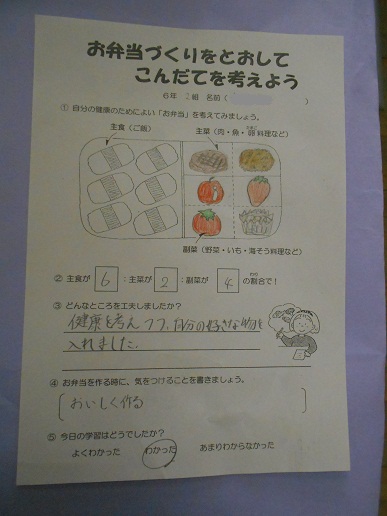 お弁当づくりをとおして
こんだてを考えよう
6年 組 名前（ ）
① 自分の健康のためによい「お弁当」を考えてみましょう。
主食（ご飯） 主菜（肉・魚・卵料理など）
副菜（野菜・いも・海そう料理など）
② 主食が 6 ：主菜が 2 ：副菜が 4 の割合で！
③ どんなところを工夫しましたか？
健康を考えつつ、自分の好きな物を
入れました。
④ お弁当を作る時に、気をつけることを書きましょう。
おいしく作る
⑤ 今日の学習はどうでしたか？
よくわかった わかった あまりわからなかった